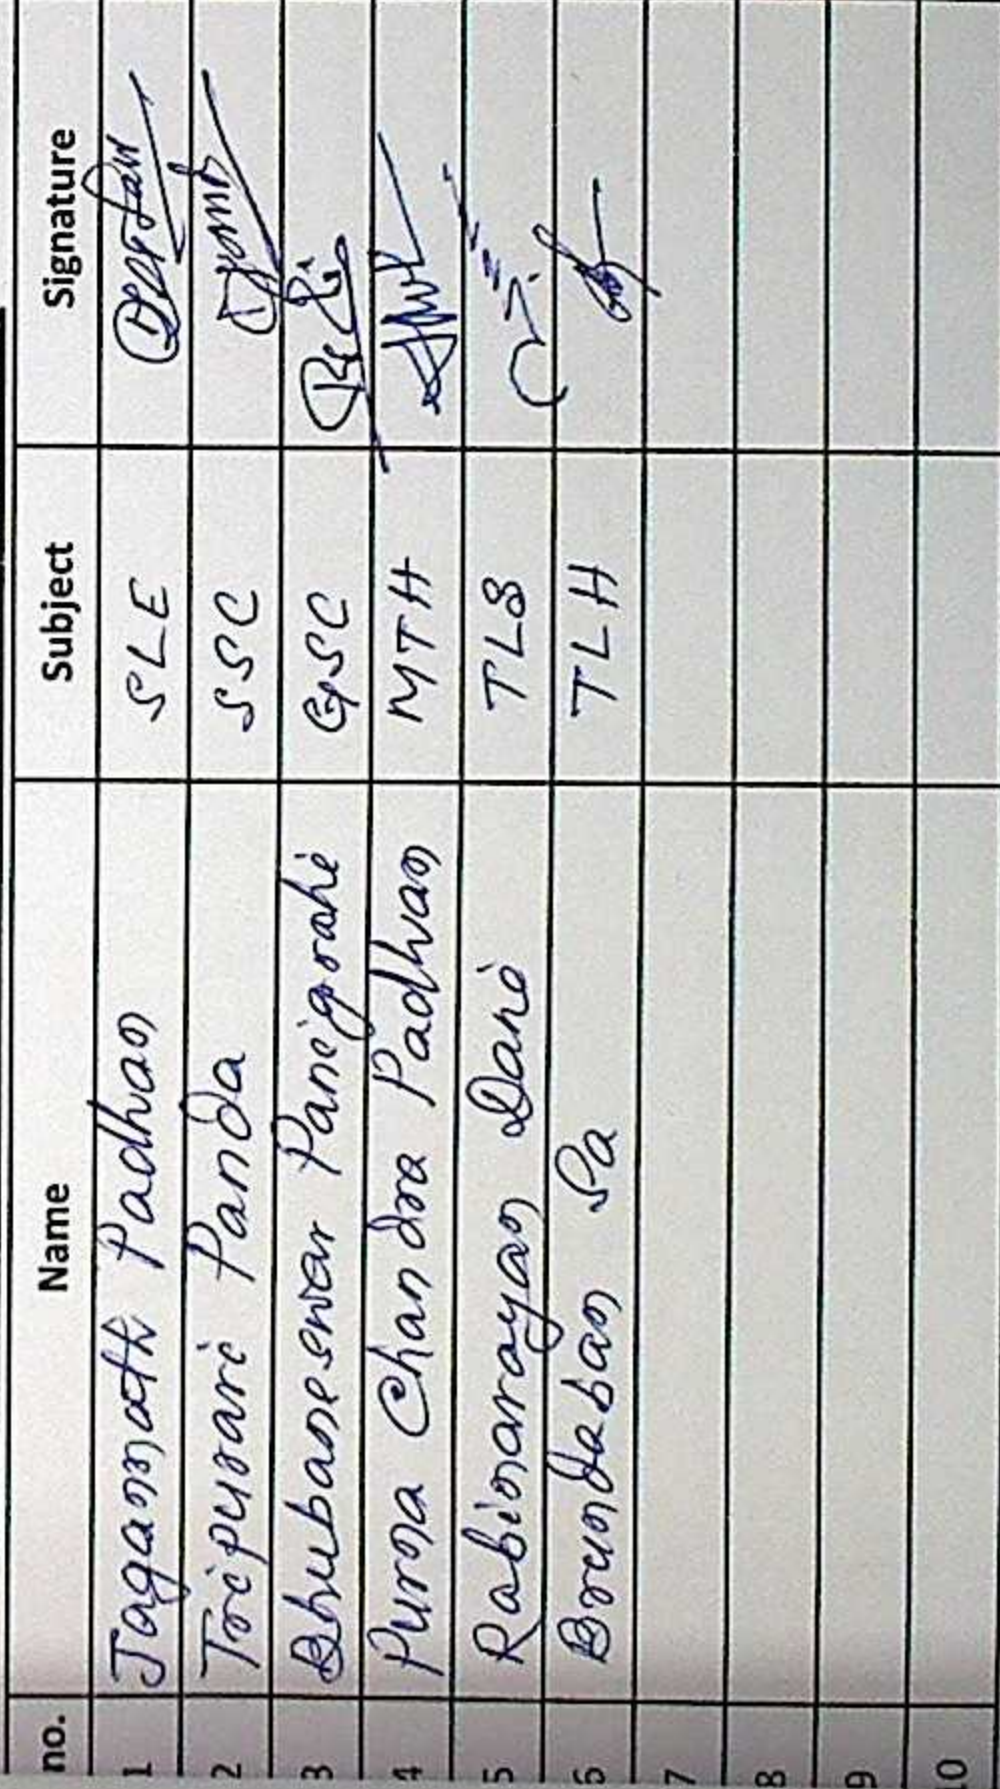 no. Name Subject Signature
1 Jagannath Padhan SLE
2 Tripurari Panda SSC
3 Bhubaneswar Panigrahi GSC
4 Purna Chandra Padhan MTH
5 Rabinarayan Dani TLS
6 Brundaban Sa TLH
7
8
9
10